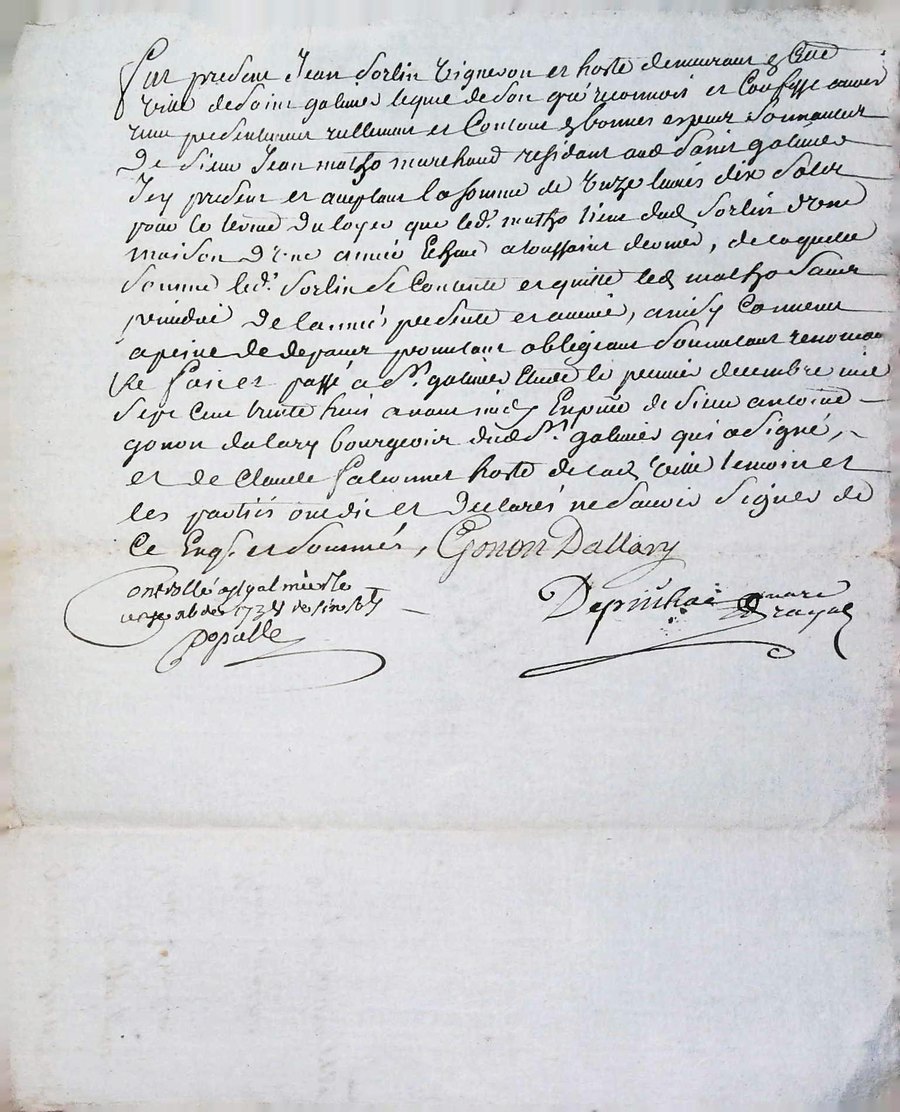 fut present Jean Sorlin vigneron et hoste demeurant en cette
ville de Saint galmier lequel de son gré reconnoit et Confesse avoir
reellement et Contant en bonnes especes Sonnantes
De Sieur Jean matho marchand residant aud Saint galmier
Icy present et aceptant la Somme de unze livres dix Solz
pour le terme du loyer que led. matho tient dud Sorlin d'une
maison d'une année Echue a toussaint dernier, de laquelle
Somme led. Sorlin Se Contente et quitte led matho Sans
prejudice de lannée presente et annuie, ainsy Convenu
a peine de depans promettant obligeant Soumettant renoncant
fait et passé a St. galmier Etude le premier decembre mil
Sept Cent trente huit avant midy En pnce de Sieur antoine
gonon dalary bourgeois dud St. galmier qui a Signé,
et de Claude hoste de lad ville temoins et
les partiés ont dit et Declarés ne Scavoir Signer de
Ce Enqs. et Sommés, Gonon Dallary
Controllé a St galmier le
xbre 1738 Six s
Deputhod notre
Royal